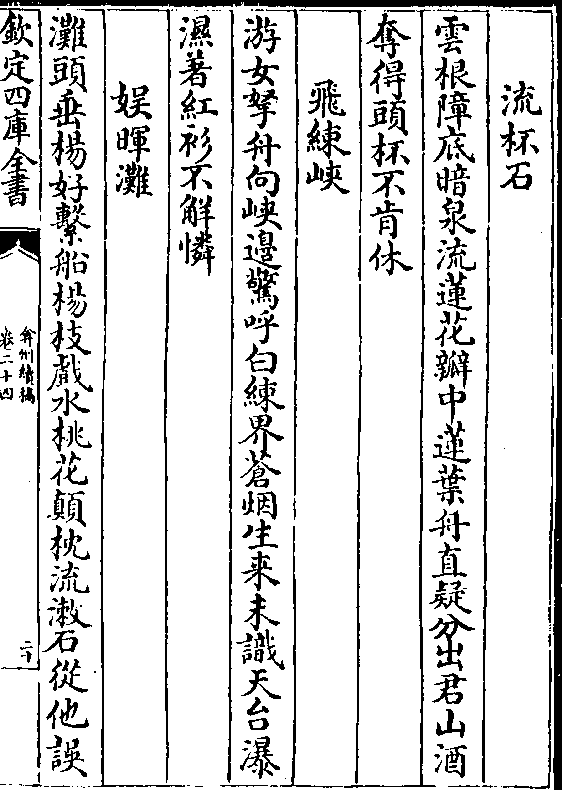 流杯石
雲根障底暗泉流蓮花瓣中蓮葉舟直疑分出君山酒
奪得頭杯不肯休
飛練峽
游女拏舟向峽邊驚呼白練界蒼烟生来未識天台瀑
濕著紅衫不解憐
娱暉灘
灘頭垂楊好繫船楊枝戲水桃花顛枕流漱石從他誤
欽定四庫全書
弇州續稿
卷二十四
二十